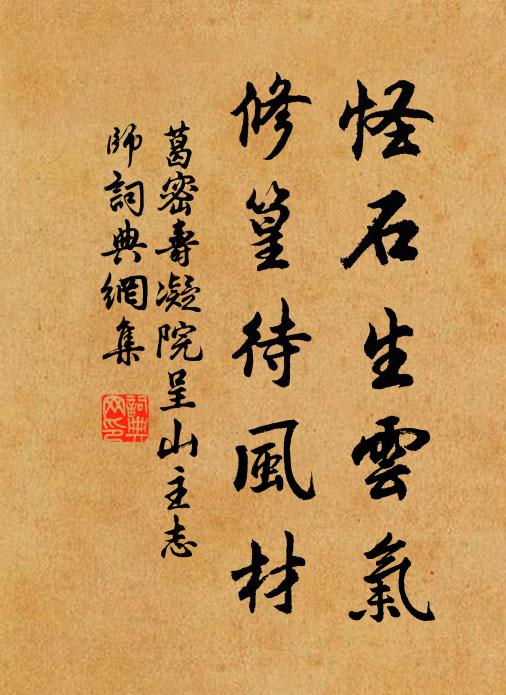 怪石生雲氣
修篁待風材
葛密壽凝院呈山主志
師詞典網集
詞典
网印